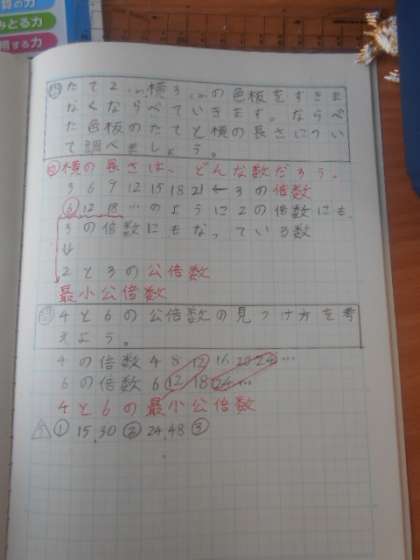 算の力
みとる力
用する力
たて2cm横3cmの色板をすきま
なくならべていきます。ならべ
た色板のたてと横の長さについ
て調べましょう。
横の長さは、どんな数だろう。
3 6 9 12 15 18 21 ← 3の倍数
6 12 18 …のように2の倍数にも
3の倍数にもなっている数
↓
2と3の公倍数
最小公倍数
4と6の公倍数の見つけ方を考
えよう。
4の倍数 4 8 12 16 20 24 …
6の倍数 6 12 18 24 …
4と6の最小公倍数
① 15.30 ② 24.48 ③